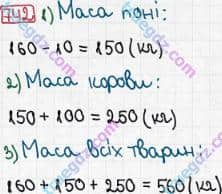 742 1) Маса поні:
160 - 10 = 150 (кг)
2) Маса корови:
150 + 100 = 250 (кг)
3) Маса всіх тварин:
160 + 150 + 250 = 560 (кг)